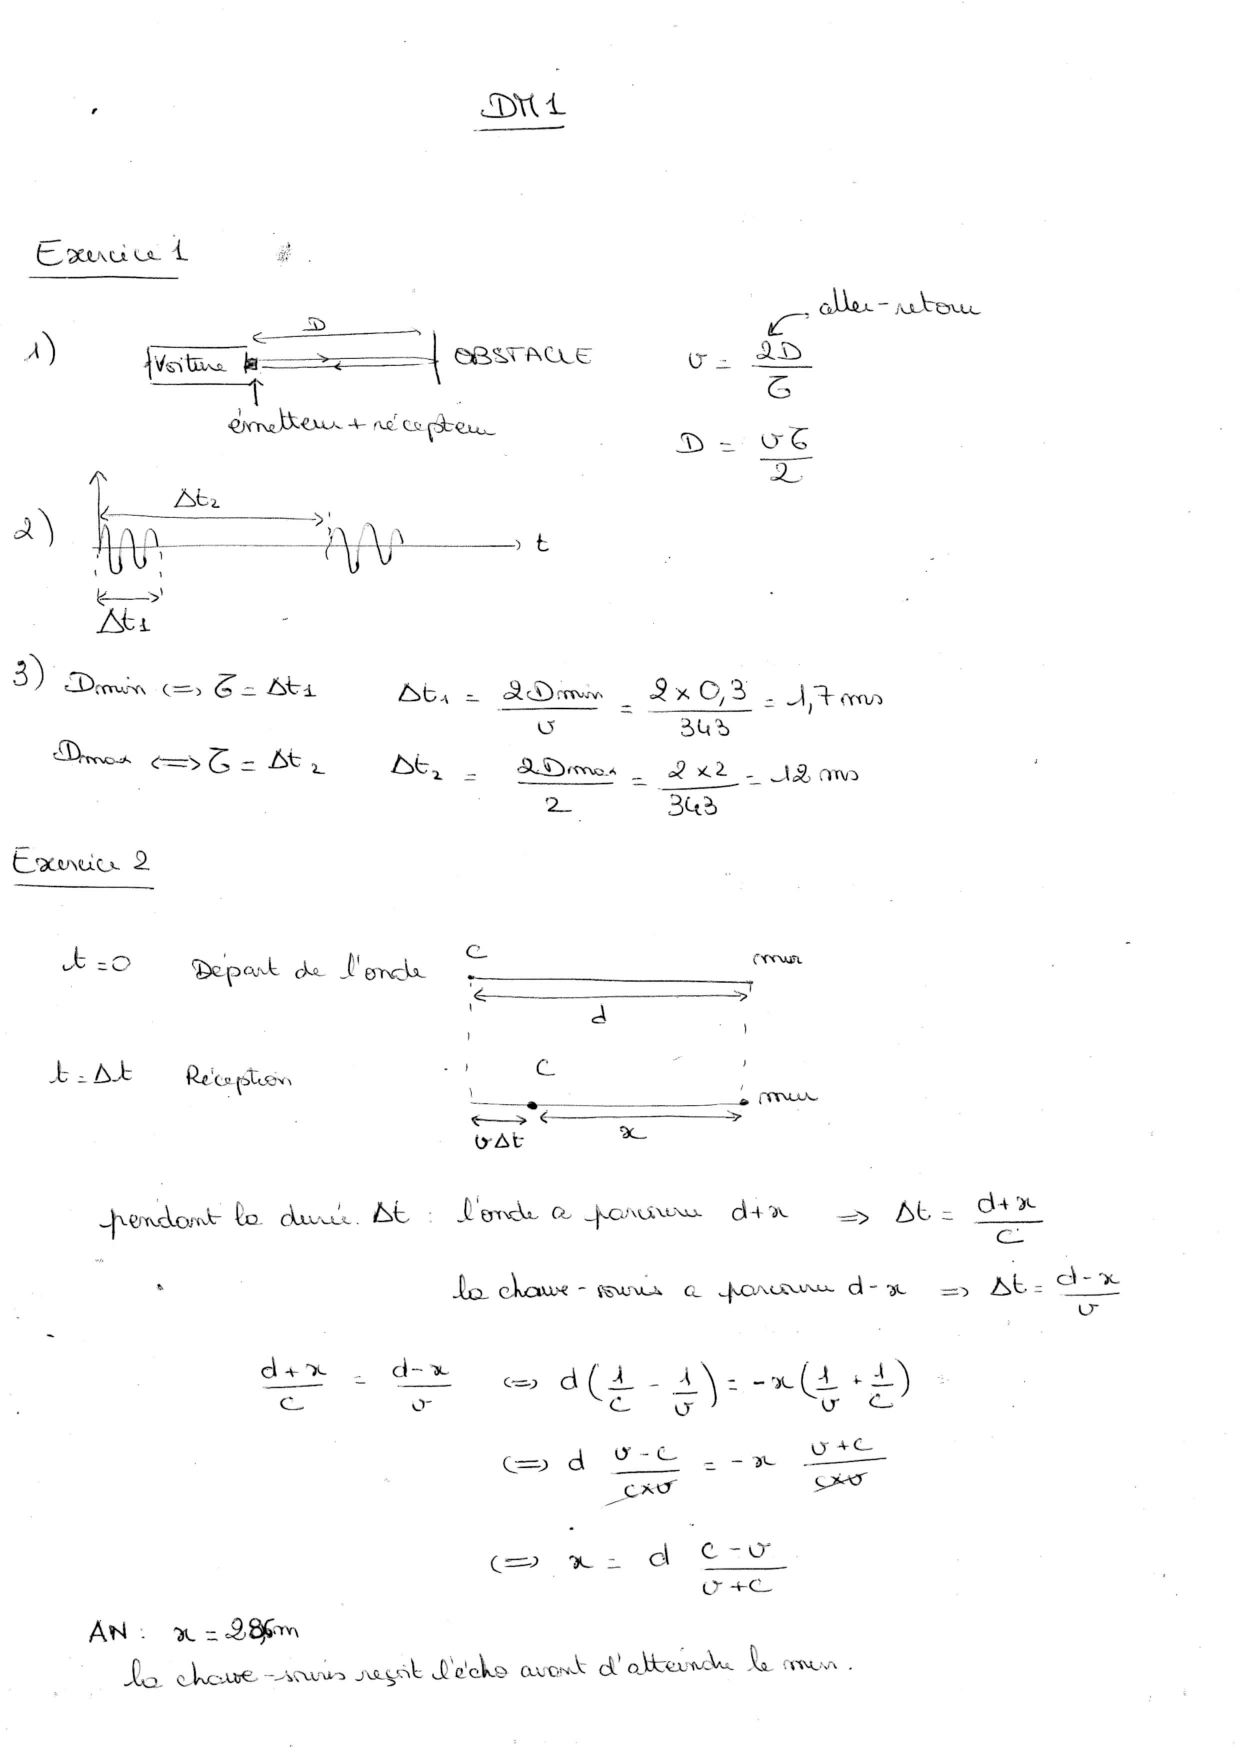 DM1
Exercice 1
1)
D
Voiture
OBSTACLE
émetteur + récepteur
aller-retour
v = 2D/τ
D = vτ/2
2)
Δt2
t
Δt1
3) Dmin <=> τ = Δt1 Δt1 = 2Dmin/v = 2×0,3/343 = 1,7 ms
Dmax <=> τ = Δt2 Δt2 = 2Dmax/2 = 2×2/343 = 12 ms
Exercice 2
t=0 Départ de l'onde
C mur
d
t=Δt Réception
C mur
vΔt x
pendant la durée Δt : l'onde a parcouru d+x => Δt = d+x/c
la chauve-souris a parcouru d-x => Δt = d-x/v
d+x/c = d-x/v <=> d(1/c - 1/v) = -x(1/v + 1/c)
<=> d v-c/c×v = -x v+c/c×v
<=> x = d c-v/v+c
AN : x =
la chauve-souris reçoit l'écho avant d'atteindre le mur.